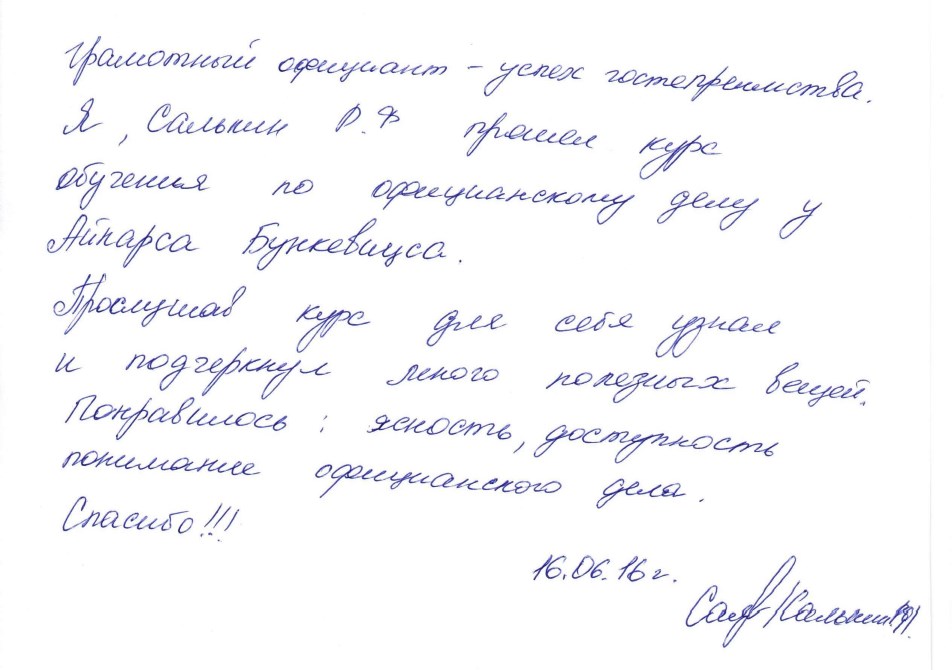 Грамотный официант – успех гостепреимства.
Я, Салькин Р.Ф прошел курс
обучения по официанскому делу у
Айнарса Бункевицса.
Прослушав курс для себя узнал
и подчеркнул много полезных вещей.
Понравилось: ясность, доступность
понимание официанского дела.
Спасибо!!!
16.06.16г.
/Салькин РФ/